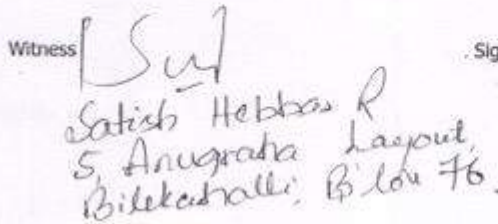 Witness Sig
Satish Hebbar R
5, Anugraha Layout,
Bilekahalli, B'lou 76.